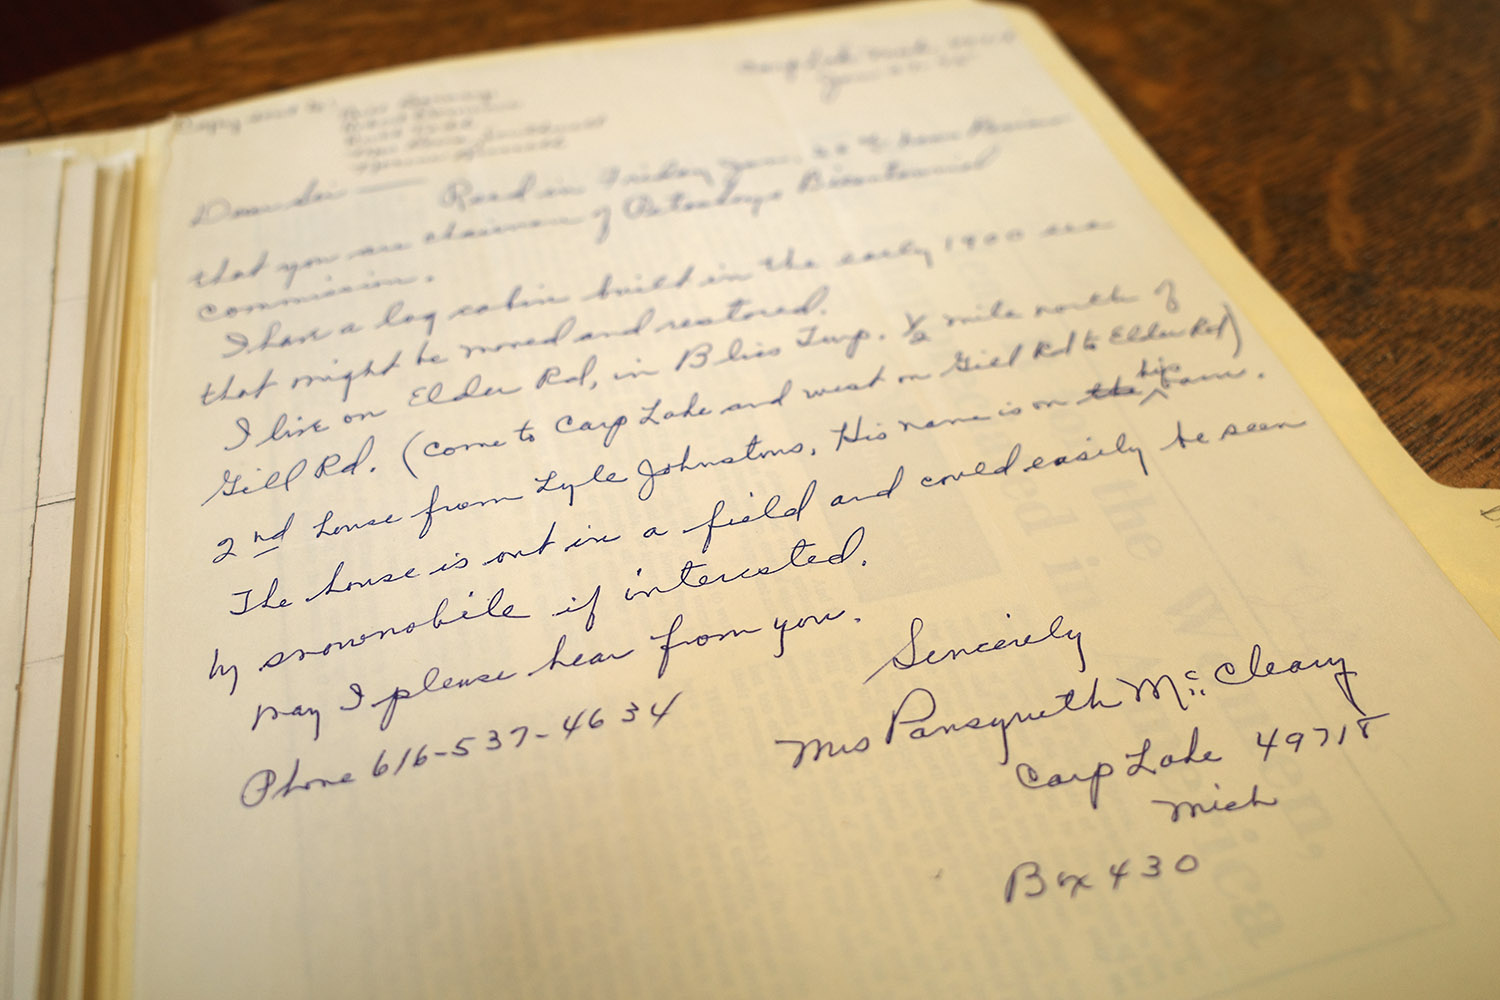 Carp Lake Mich
Jan
Copy sent to
Dear Sir — Read in Friday Jan. News Review
that you are chairman of Petoskeys Bicentennial
commission.
I have a log cabin built in the early 1900 era
that might be moved and restored.
I live on Elder Rd, in Bliss Twp. ½ mile north of
Gill Rd. (come to Carp Lake and west on Gill Rd to Elder Rd)
2nd house from Lyle Johnstons. His name is on the his barn.
The house is out in a field and could easily be seen
by snowmobile if interested.
May I please hear from you.
Phone 616-537-4634
Sincerely
Mrs Pansyruth McCleary
Carp Lake 49718
Mich
Box 430
the W
ed in A
ica